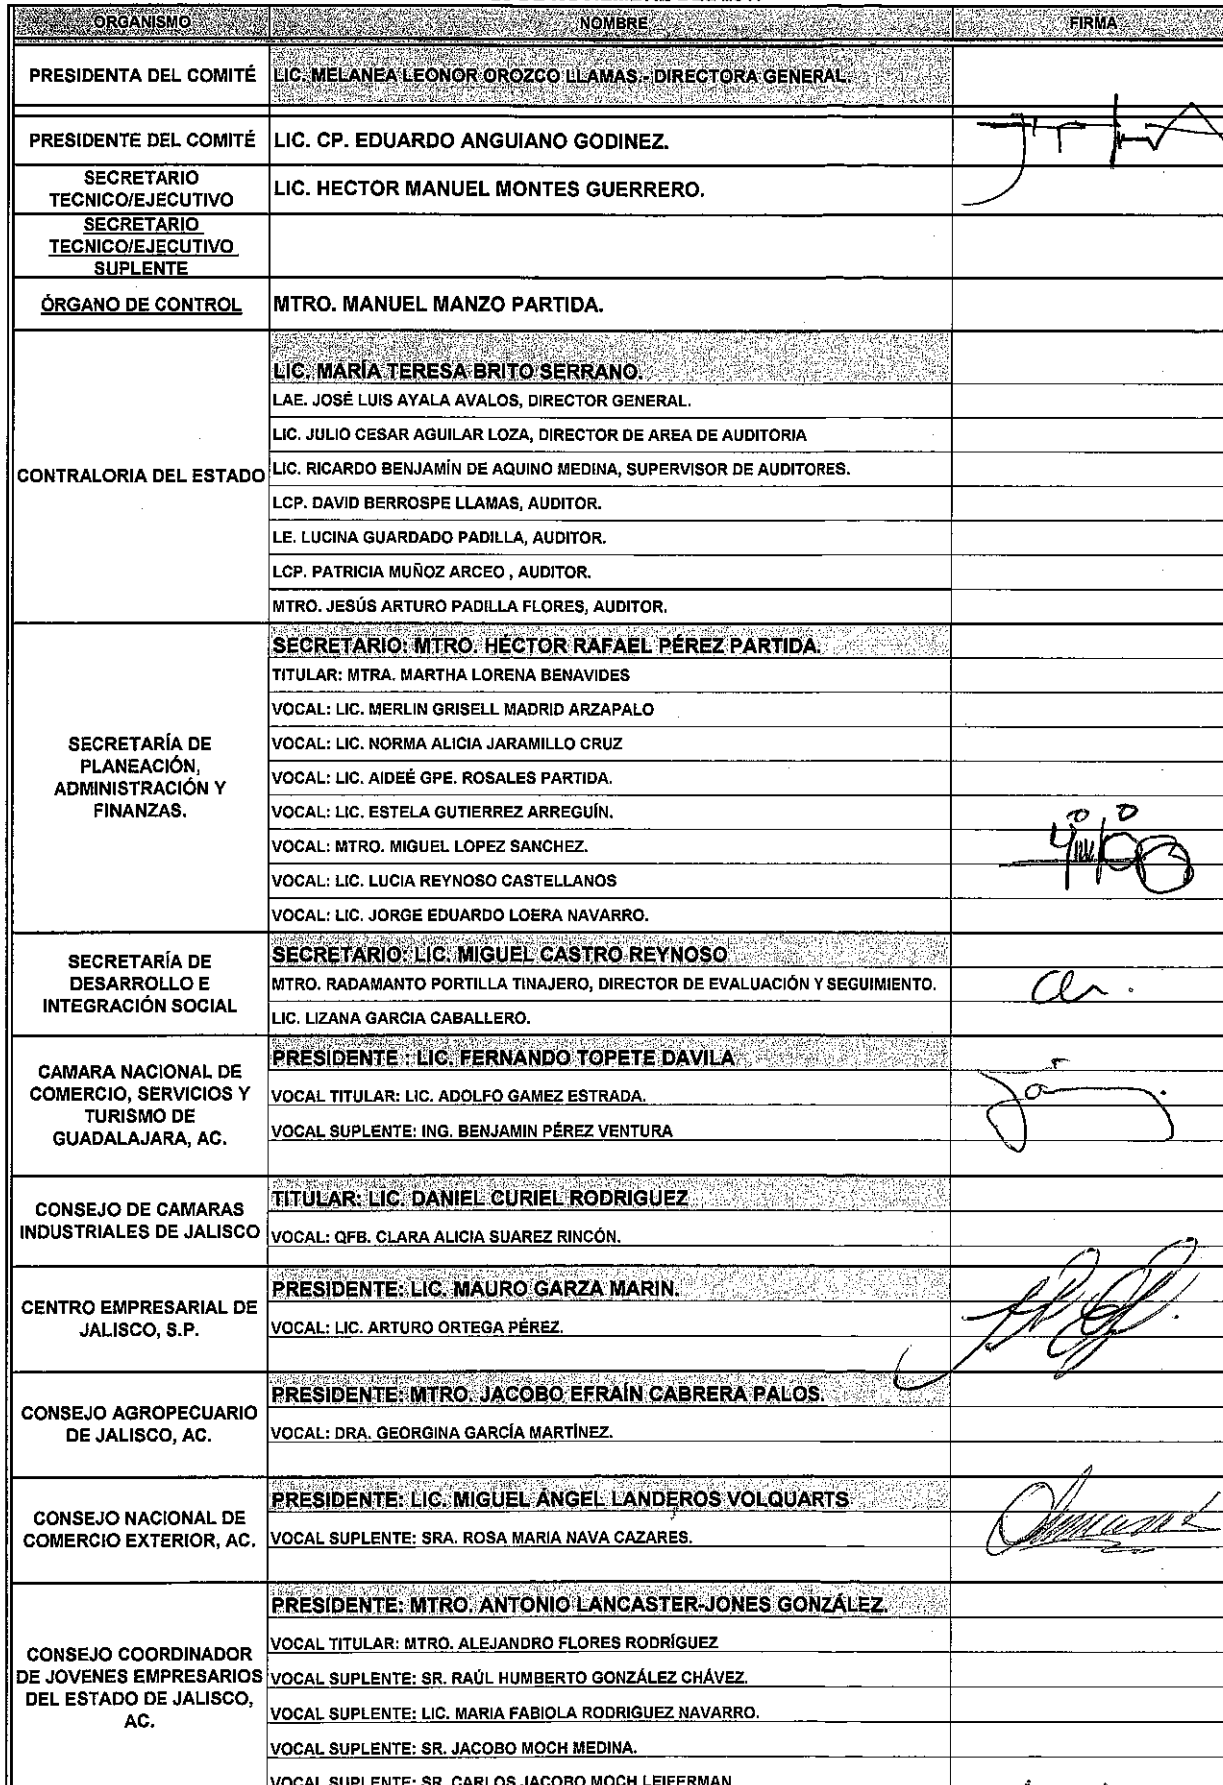 ORGANISMO NOMBRE FIRMA
PRESIDENTA DEL COMITÉ LIC. MELANEA LEONOR OROZCO LLAMAS.- DIRECTORA GENERAL.
PRESIDENTE DEL COMITÉ LIC. CP. EDUARDO ANGUIANO GODINEZ.
SECRETARIO
TECNICO/EJECUTIVO
LIC. HECTOR MANUEL MONTES GUERRERO.
SECRETARIO
TECNICO/EJECUTIVO
SUPLENTE
ÓRGANO DE CONTROL MTRO. MANUEL MANZO PARTIDA.
CONTRALORIA DEL ESTADO
LIC. MARÍA TERESA BRITO SERRANO.
LAE. JOSÉ LUIS AYALA AVALOS, DIRECTOR GENERAL.
LIC. JULIO CESAR AGUILAR LOZA, DIRECTOR DE AREA DE AUDITORIA
LIC. RICARDO BENJAMÍN DE AQUINO MEDINA, SUPERVISOR DE AUDITORES.
LCP. DAVID BERROSPE LLAMAS, AUDITOR.
LE. LUCINA GUARDADO PADILLA, AUDITOR.
LCP. PATRICIA MUÑOZ ARCEO , AUDITOR.
MTRO. JESÚS ARTURO PADILLA FLORES, AUDITOR.
SECRETARÍA DE
PLANEACIÓN,
ADMINISTRACIÓN Y
FINANZAS.
SECRETARIO: MTRO. HÉCTOR RAFAEL PÉREZ PARTIDA.
TITULAR: MTRA. MARTHA LORENA BENAVIDES
VOCAL: LIC. MERLIN GRISELL MADRID ARZAPALO
VOCAL: LIC. NORMA ALICIA JARAMILLO CRUZ
VOCAL: LIC. AIDEÉ GPE. ROSALES PARTIDA.
VOCAL: LIC. ESTELA GUTIERREZ ARREGUÍN.
VOCAL: MTRO. MIGUEL LOPEZ SANCHEZ.
VOCAL: LIC. LUCIA REYNOSO CASTELLANOS
VOCAL: LIC. JORGE EDUARDO LOERA NAVARRO.
SECRETARÍA DE
DESARROLLO E
INTEGRACIÓN SOCIAL
SECRETARIO: LIC. MIGUEL CASTRO REYNOSO
MTRO. RADAMANTO PORTILLA TINAJERO, DIRECTOR DE EVALUACIÓN Y SEGUIMIENTO.
LIC. LIZANA GARCIA CABALLERO.
CAMARA NACIONAL DE
COMERCIO, SERVICIOS Y
TURISMO DE
GUADALAJARA, AC.
PRESIDENTE : LIC. FERNANDO TOPETE DAVILA
VOCAL TITULAR: LIC. ADOLFO GAMEZ ESTRADA.
VOCAL SUPLENTE: ING. BENJAMIN PÉREZ VENTURA
CONSEJO DE CAMARAS
INDUSTRIALES DE JALISCO
TITULAR: LIC. DANIEL CURIEL RODRIGUEZ
VOCAL: QFB. CLARA ALICIA SUAREZ RINCÓN.
CENTRO EMPRESARIAL DE
JALISCO, S.P.
PRESIDENTE: LIC. MAURO GARZA MARIN.
VOCAL: LIC. ARTURO ORTEGA PÉREZ.
CONSEJO AGROPECUARIO
DE JALISCO, AC.
PRESIDENTE: MTRO. JACOBO EFRAÍN CABRERA PALOS.
VOCAL: DRA. GEORGINA GARCÍA MARTÍNEZ.
CONSEJO NACIONAL DE
COMERCIO EXTERIOR, AC.
PRESIDENTE: LIC. MIGUEL ÁNGEL LANDEROS VOLQUARTS
VOCAL SUPLENTE: SRA. ROSA MARIA NAVA CAZARES.
CONSEJO COORDINADOR
DE JOVENES EMPRESARIOS
DEL ESTADO DE JALISCO,
AC.
PRESIDENTE: MTRO. ANTONIO LANCASTER-JONES GONZÁLEZ.
VOCAL TITULAR: MTRO. ALEJANDRO FLORES RODRÍGUEZ
VOCAL SUPLENTE: SR. RAÚL HUMBERTO GONZÁLEZ CHÁVEZ.
VOCAL SUPLENTE: LIC. MARIA FABIOLA RODRIGUEZ NAVARRO.
VOCAL SUPLENTE: SR. JACOBO MOCH MEDINA.
VOCAL SUPLENTE: SR. CARLOS JACOBO MOCH LEIFERMAN